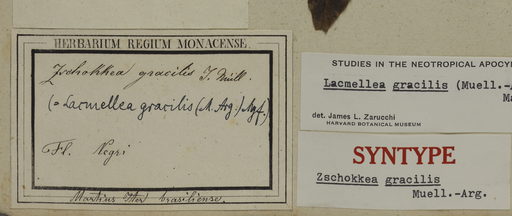 HERBARIUM REGIUM MONACENSE.
Zschokkea gracilis J. Müll.
(= Lacmellea gracilis (M. Arg.) Mgf.)
Fl. Negri
Martius Iter brasiliense.
STUDIES IN THE NEOTROPICAL APOCYN
Lacmellea gracilis (Muell.-
Ma
det. James L. Zarucchi
HARVARD BOTANICAL MUSEUM
SYNTYPE
Zschokkea gracilis
Muell.-Arg.